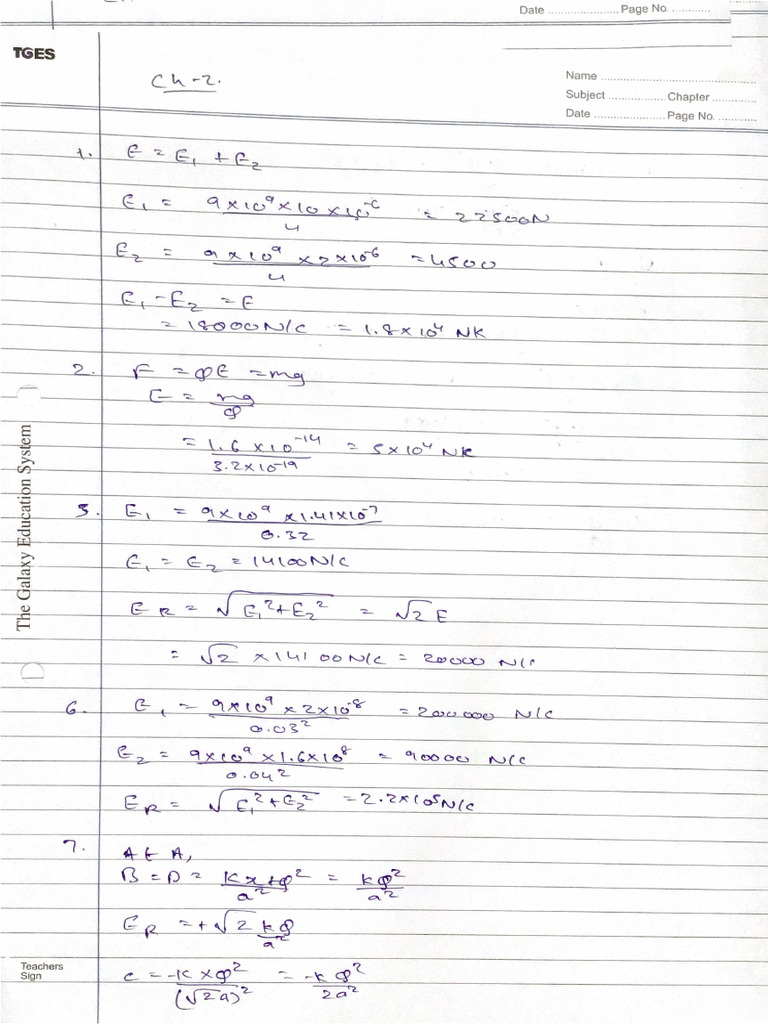 Date .................... Page No. ...........
TGES
Ch-2.
Name ...............................................
Subject ................. Chapter .............
Date ..................... Page No. ............
1. E = E₁ + E₂
E₁ = 9×10⁹×10×10⁻⁶ / 4 = 22500N
E₂ = 9×10⁹×2×10⁻⁶ / 4 = 4500
E₁ - E₂ = E
= 18000N/C = 1.8×10⁴ N/C
2. F = QE = mg
E = mg / Q
= 1.6×10⁻¹⁴ / 3.2×10⁻¹⁹ = 5×10⁴ N/C
5. E₁ = 9×10⁹×1.41×10⁻⁷ / 0.32
E₁ = E₂ = 14100N/C
E R = √E₁²+E₂² = √2 E
= √2 × 14100N/C = 20000 N/C
6. E₁ = 9×10⁹×2×10⁻⁸ / 0.03² = 200000 N/C
E₂ = 9×10⁹×1.6×10⁸ / 0.04² = 90000 N/C
E R = √E₁²+E₂² = 2.2×10⁵N/C
7. At A,
B = D = K×+Q² / a² = KQ² / a²
E R = +√2 KQ / a²
C = -K×Q² / (√2a)² = -KQ² / 2a²
The Galaxy Education System
Teachers
Sign